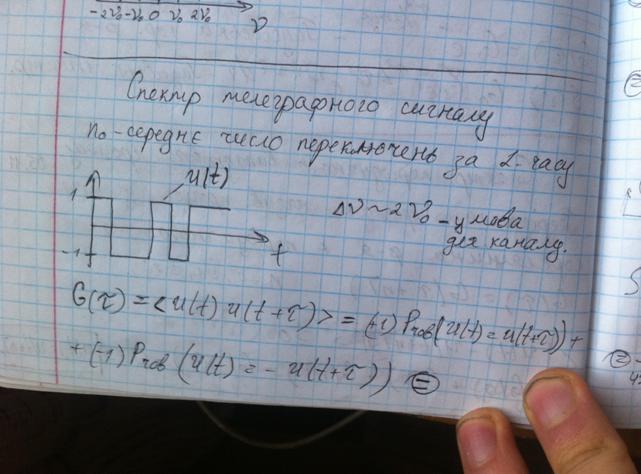 -2ν₀ -ν₀ 0 ν₀ 2ν₀
ν
Спектр телеграфного сигналу
n₀ - середнє число переключень за 1. часу
1
u(t)
-1
t
Δν ~ 2ν₀ - умова
для каналу.
G(τ) = <u(t) u(t+τ)> = (+1) Prob(u(t) = u(t+τ)) +
+ (-1) Prob (u(t) = - u(t+τ)) =